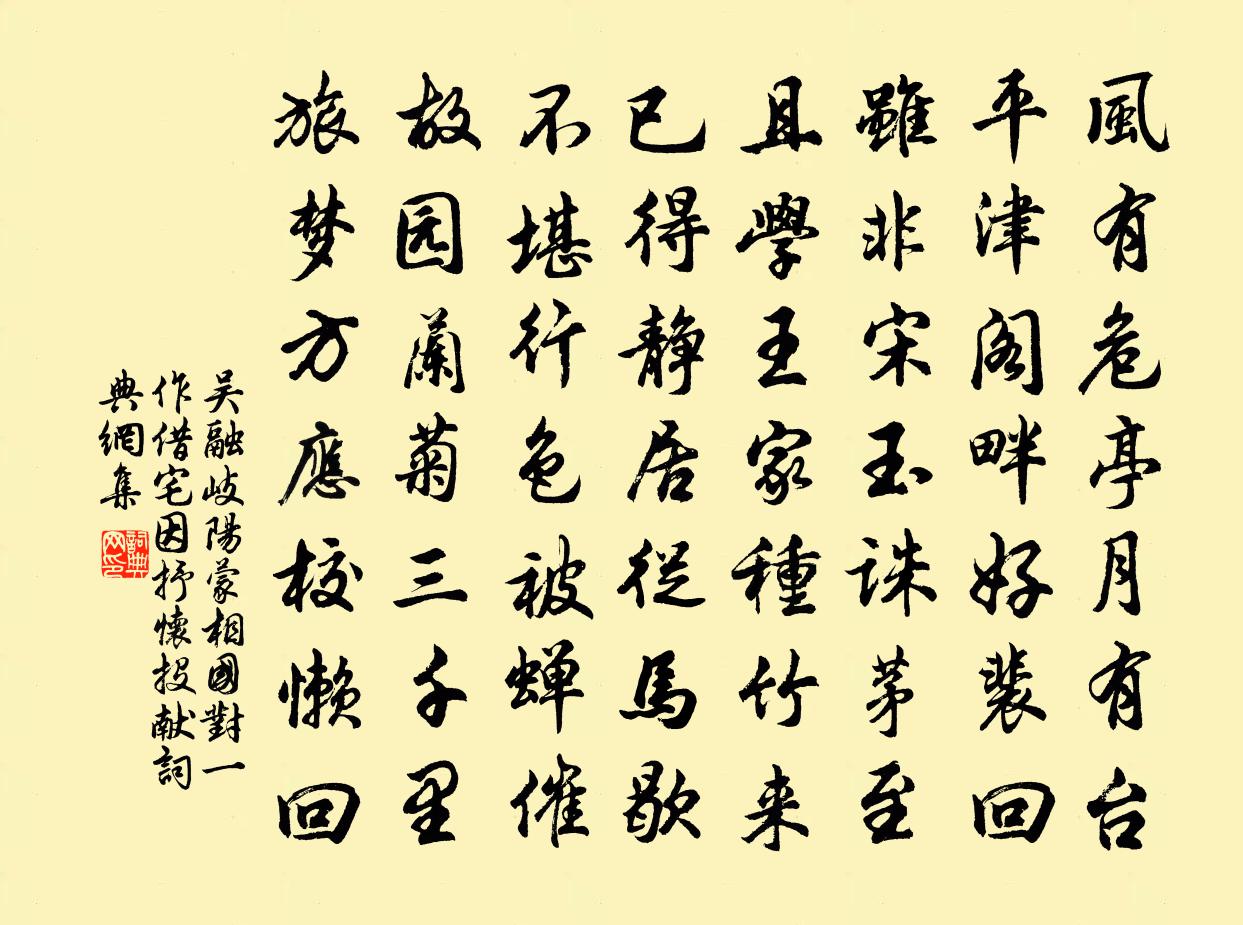 風有危亭月有台
平津阁畔好裴回
雖非宋玉誅茅至
且學王家種竹来
已得静居從馬歇
不堪行色被蝉催
故园蘭菊三千里
旅梦方應校懒回
吴融岐陽蒙相國對一
作借宅因抒懷投献詞
典網集
詞典网印